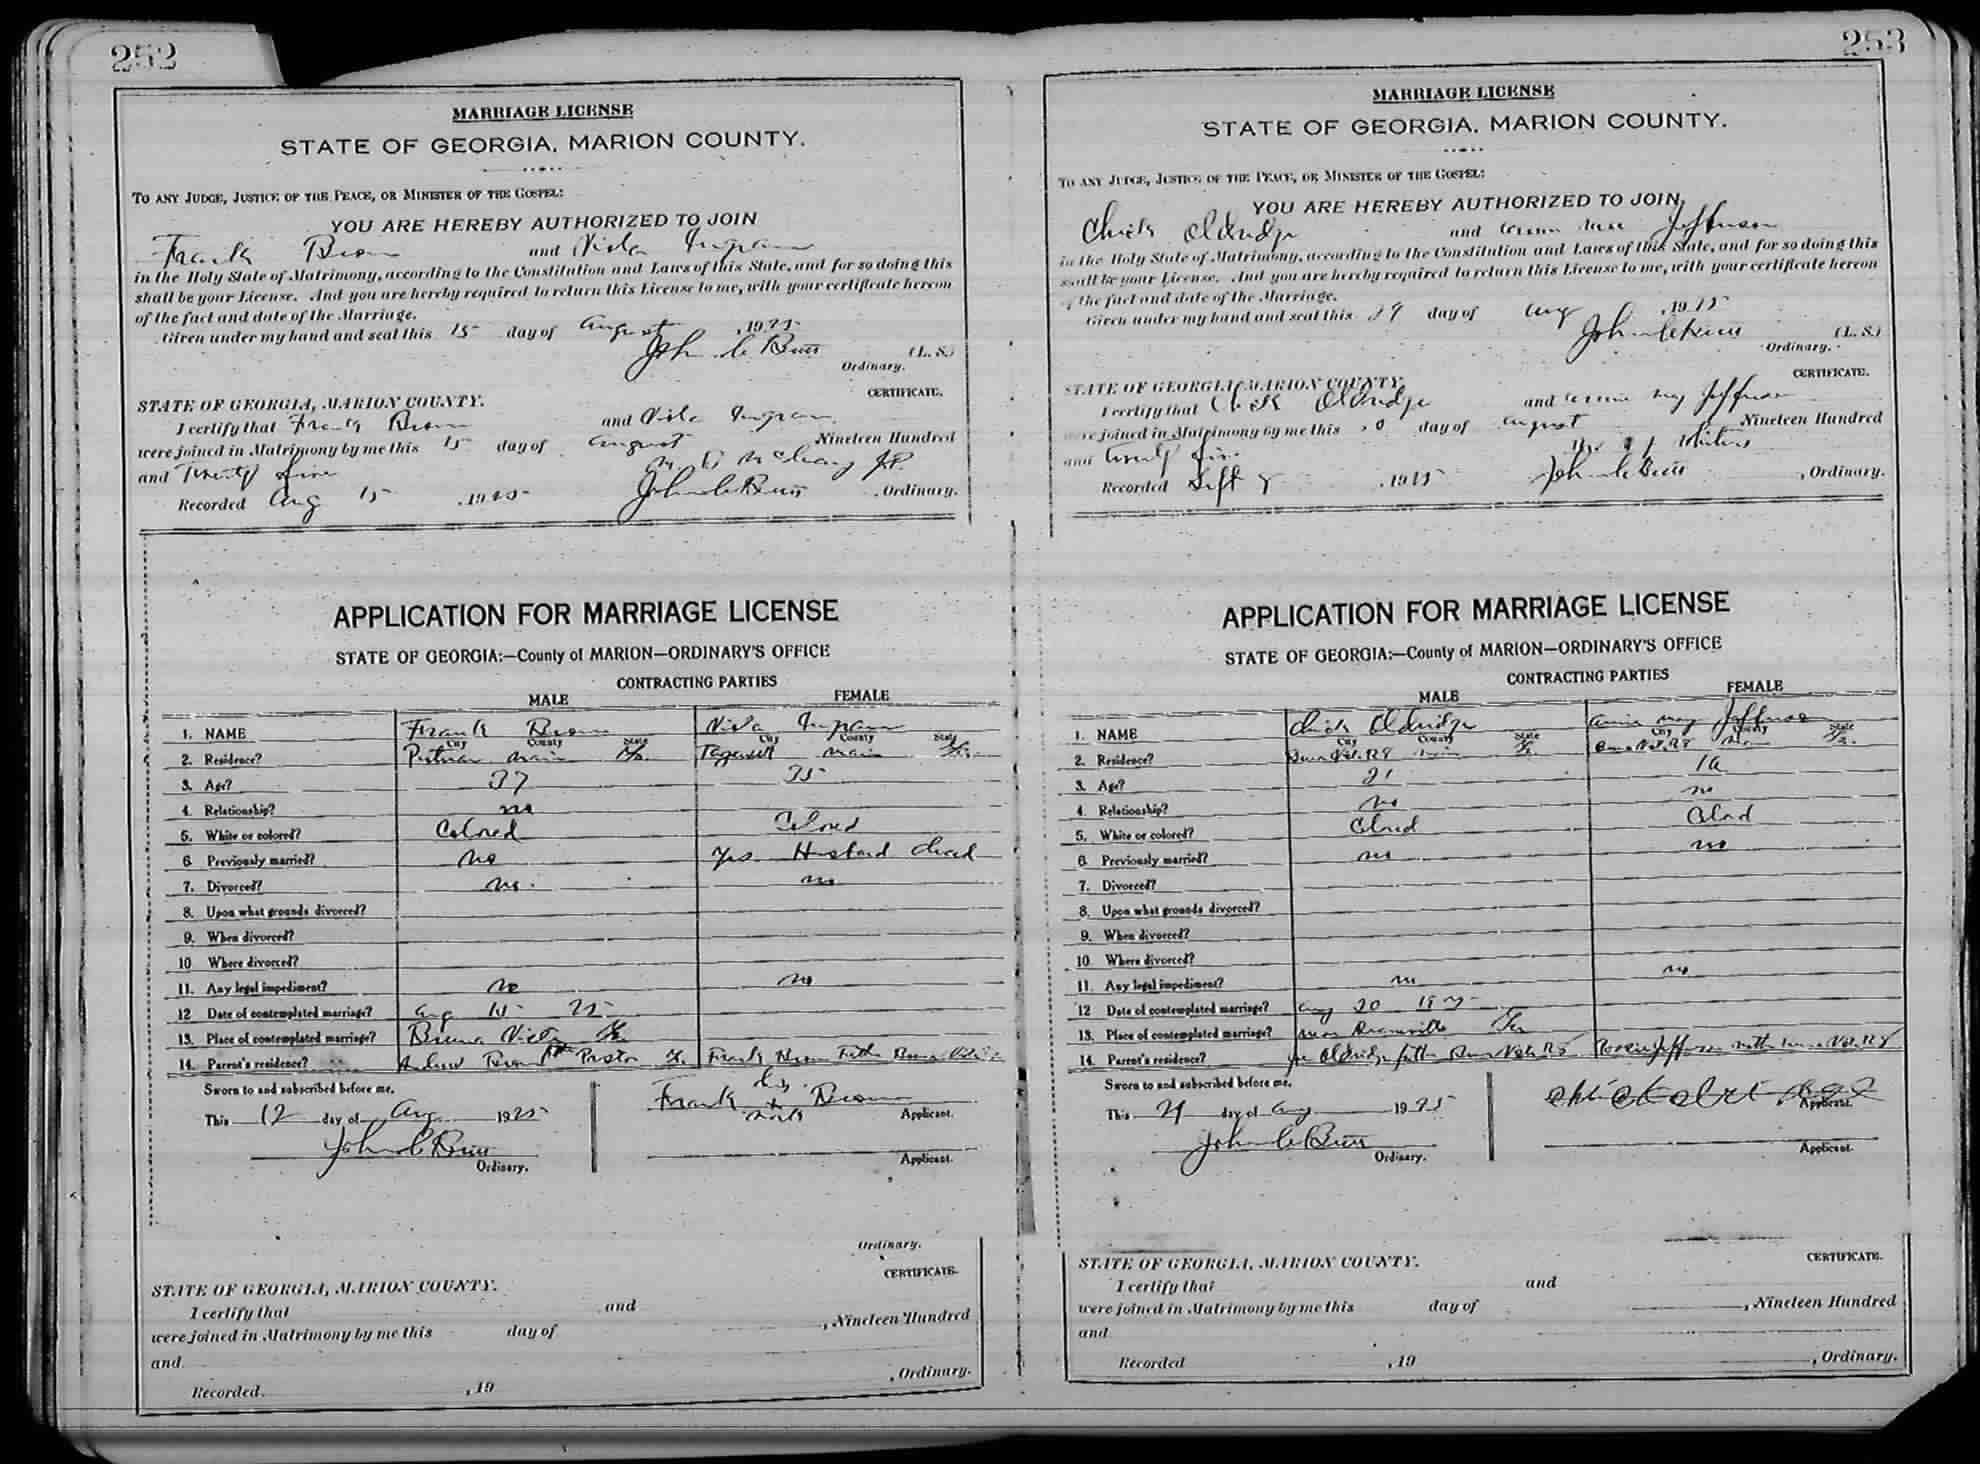 252
MARRIAGE LICENSE
STATE OF GEORGIA, MARION COUNTY.
TO ANY JUDGE, JUSTICE OF THE PEACE, OR MINISTER OF THE GOSPEL:
YOU ARE HEREBY AUTHORIZED TO JOIN
Frank Brown and Viola Ingram
in the Holy State of Matrimony, according to the Constitution and Laws of this State, and for so doing this
shall be your License. And you are hereby required to return this License to me, with your certificate hereon
of the fact and date of the Marriage.
Given under my hand and seal this 15 day of August, 1925
John C Butt (L. S.)
Ordinary.
CERTIFICATE.
STATE OF GEORGIA, MARION COUNTY.
I certify that Frank Brown and Viola Ingram
were joined in Matrimony by me this 15 day of August Nineteen Hundred
and Twenty five J.P.
Recorded Aug 15, 1925 John C Butt, Ordinary.
APPLICATION FOR MARRIAGE LICENSE
STATE OF GEORGIA:—County of MARION—ORDINARY'S OFFICE
CONTRACTING PARTIES
MALE FEMALE
1. NAME Frank Brown Viola Ingram
City County State City County State
2. Residence? Putnam Marion Ga. Tazewell Marion Ga.
3. Age? 37 35
4. Relationship? no
5. White or colored? Colored Colored
6 Previously married? no yes Husband dead
7. Divorced? no. no
8. Upon what grounds divorced?
9. When divorced?
10 Where divorced?
11. Any legal impediment? no no
12 Date of contemplated marriage? Aug 15 25
13. Place of contemplated marriage? Buena Vista Ga
14. Parent's residence? Andrew Brown Ga. Frank Father Buena Vista
Sworn to and subscribed before me.
This 12 day of Aug 1925
his
Frank x Brown
mark Applicant.
John C Butt
Ordinary.
Applicant.
Ordinary.
CERTIFICATE.
STATE OF GEORGIA, MARION COUNTY.
I certify that and
were joined in Matrimony by me this day of , Nineteen Hundred
and
Recorded , 19 , Ordinary.
253
MARRIAGE LICENSE
STATE OF GEORGIA, MARION COUNTY.
TO ANY JUDGE, JUSTICE OF THE PEACE, OR MINISTER OF THE GOSPEL:
YOU ARE HEREBY AUTHORIZED TO JOIN
Chick Oldridge and Annie Jefferson
in the Holy State of Matrimony, according to the Constitution and Laws of this State, and for so doing this
shall be your License. And you are hereby required to return this License to me, with your certificate hereon
of the fact and date of the Marriage.
Given under my hand and seal this 29 day of Aug, 1925
John C Butt (L. S.)
Ordinary.
CERTIFICATE.
STATE OF GEORGIA, MARION COUNTY.
I certify that Chick Oldridge and Annie May Jefferson
were joined in Matrimony by me this 30 day of August Nineteen Hundred
and Twenty five
Recorded Sept 8, 1925 John C Butt, Ordinary.
APPLICATION FOR MARRIAGE LICENSE
STATE OF GEORGIA:—County of MARION—ORDINARY'S OFFICE
CONTRACTING PARTIES
MALE FEMALE
1. NAME Chick Oldridge Annie May Jefferson
City County State City County State
2. Residence? Buena Vista R8 Marion Ga. Buena Vista R8 Marion Ga.
3. Age? 21
4. Relationship? no no
5. White or colored? Colored Colored
6 Previously married? no no
7. Divorced?
8. Upon what grounds divorced?
9. When divorced?
10. Where divorced?
11. Any legal impediment? no no
12 Date of contemplated marriage? Aug 30 1925
13. Place of contemplated marriage? near Ga
14. Parent's residence? Oldridge father Buena Vista R8 Jefferson mother Buena Vista R8
Sworn to and subscribed before me.
This 29 day of Aug 1925
Applicant.
John C Butt
Ordinary.
Applicant.
CERTIFICATE.
STATE OF GEORGIA, MARION COUNTY.
I certify that and
were joined in Matrimony by me this day of , Nineteen Hundred
and
Recorded , 19 , Ordinary.